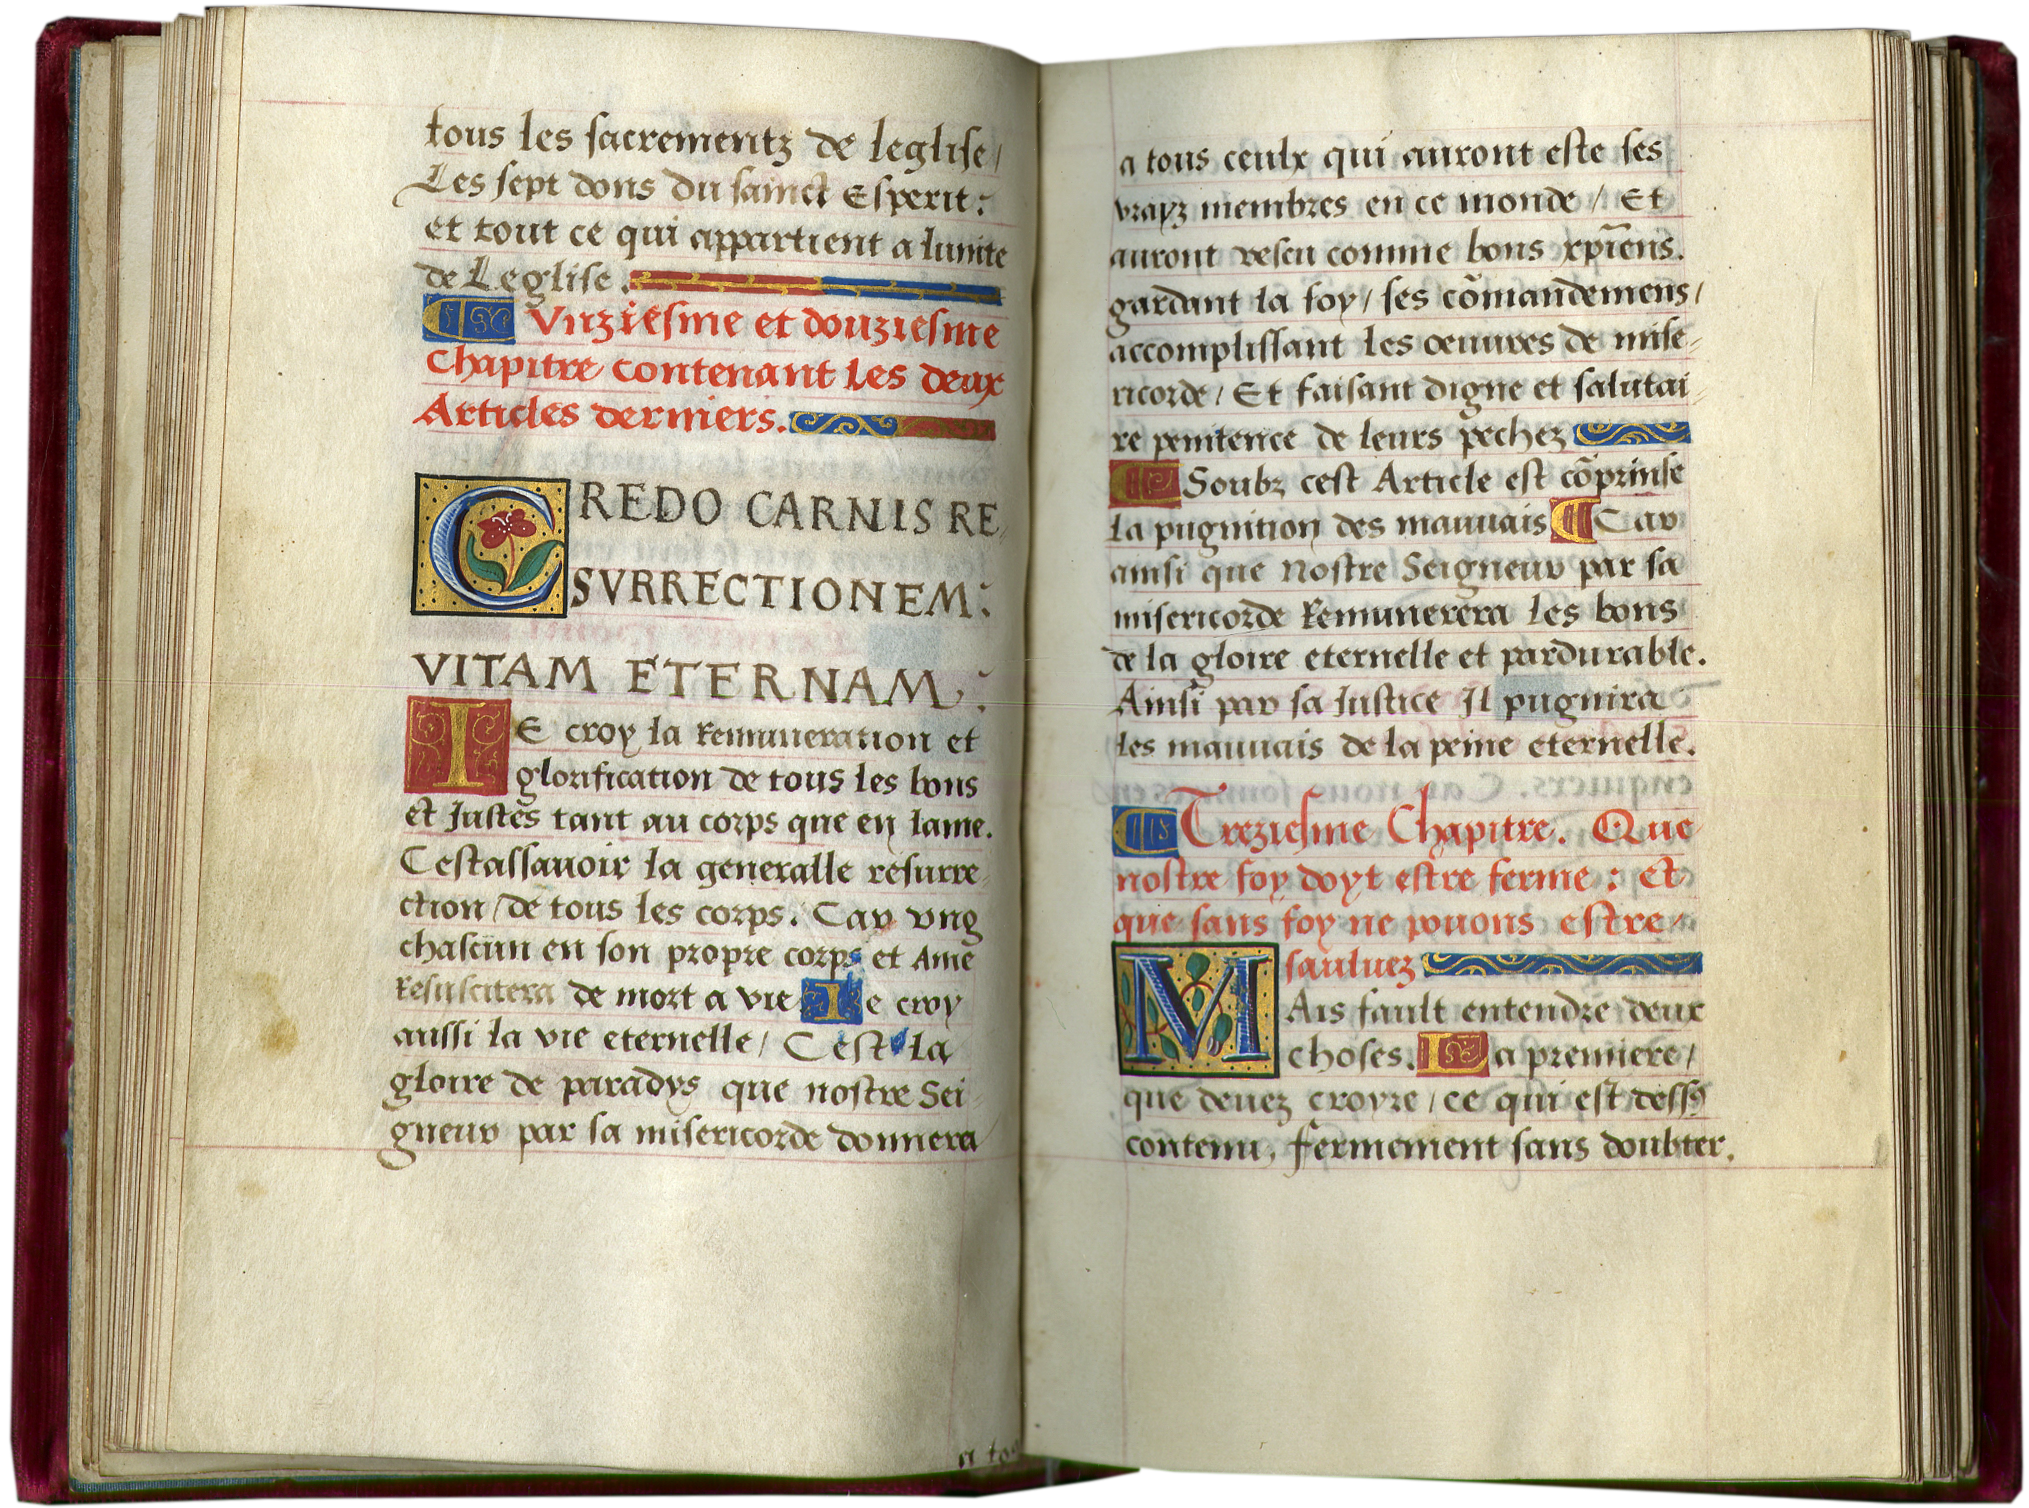 tous les sacrementz de leglise/
Les sept dons du sainct Esperit:
et tout ce qui appartient a lunite
de Leglise.
¶ Vnziesme et douziesme
Chapitre contenant les deux
Articles derniers.
CREDO CARNIS RE
SVRRECTIONEM:
VITAM ETERNAM:
IE croy la Remuneration et
glorification de tous les bons
et Justes tant au corps que en lame.
Cestassauoir la generalle resurre
ction/de tous les corps. Car vng
chascun en son propre corps et Ame
Resuscitera de mort a vie Ie croy
aussi la vie eternelle/ Cest la
gloire de paradys que nostre Sei
gneur par sa misericorde donnera
a to
a tous ceulx qui auront este ses
vrayz membres en ce monde/ Et
auront vescu comme bons xpīens.
gardant la foy/ ses cōmandemens/
accomplissant les oeuures de mise-
ricorde/ Et faisant digne et salutai-
re penitence de leurs pechez
¶ Soubz cest Article est cōprinse
la pugnition des mauuais ¶ Car
ainsi que Nostre Seigneur par sa
misericorde Remunerera les bons
de la gloire eternelle et pardurable.
Ainsi par sa Justice Il pugnira
les mauuais de la peine eternelle.
¶ Treziesme Chapitre. Que
nostre foy doyt estre ferme: et
que sans foy ne pouons estre
sauluez
MAis fault entendre deux
choses. La premiere/
que deuez croyre/ce qui est dessꝰ
contenu, fermement sans doubter.